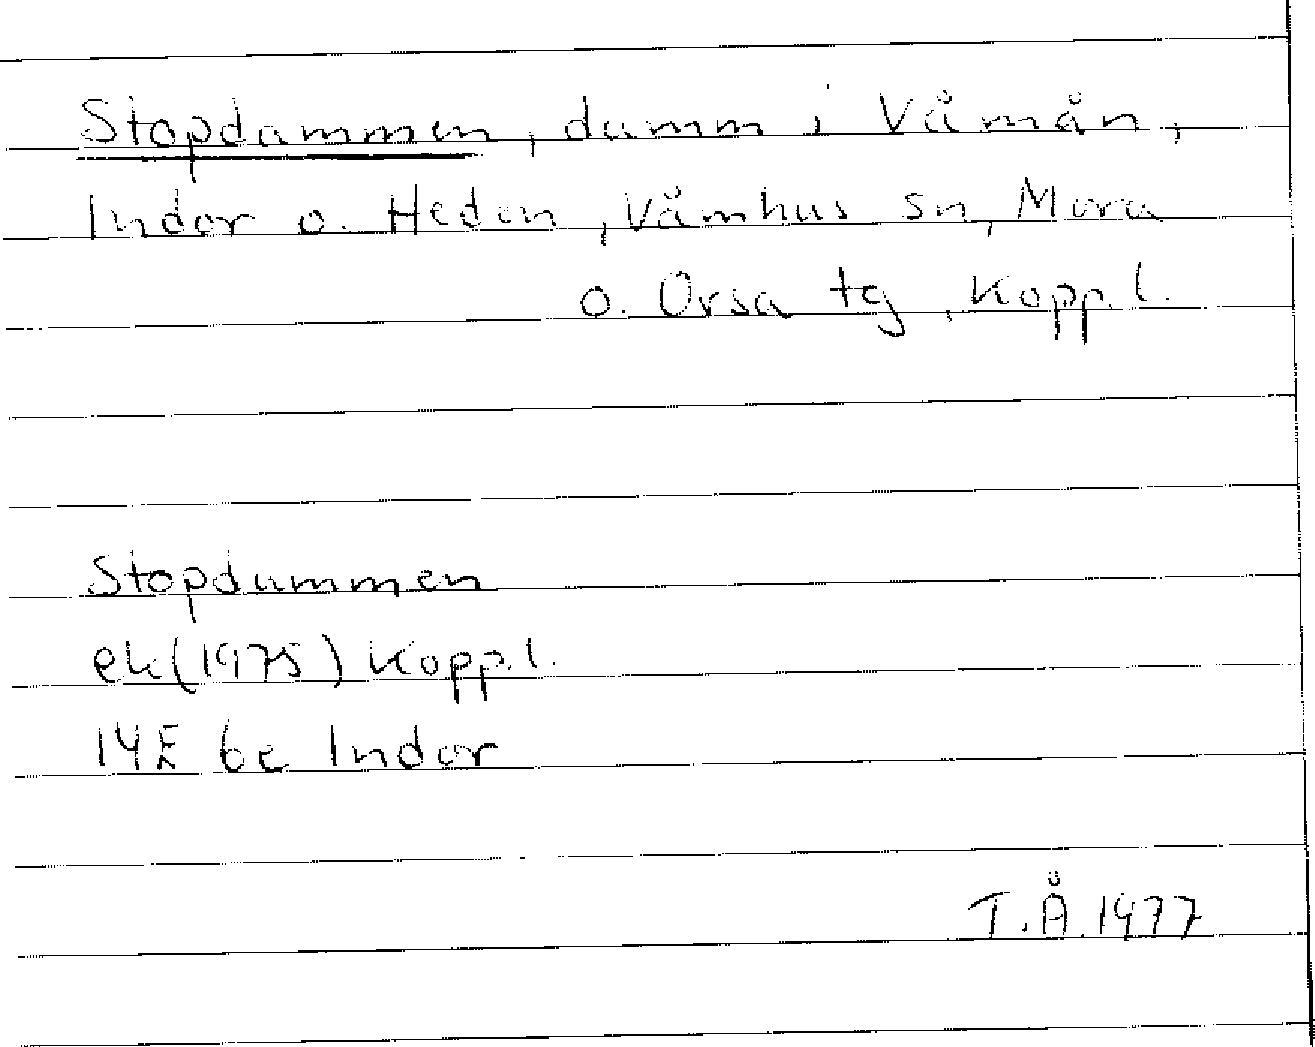 Stopdammen, damm i Våmån,
Indor o. Heden, Våmhus sn, Mora
o. Orsa tg, Kopp.l.
Stopdammen
ek(1975) Kopp.l.
14E 6e Indor
T.Å.1977